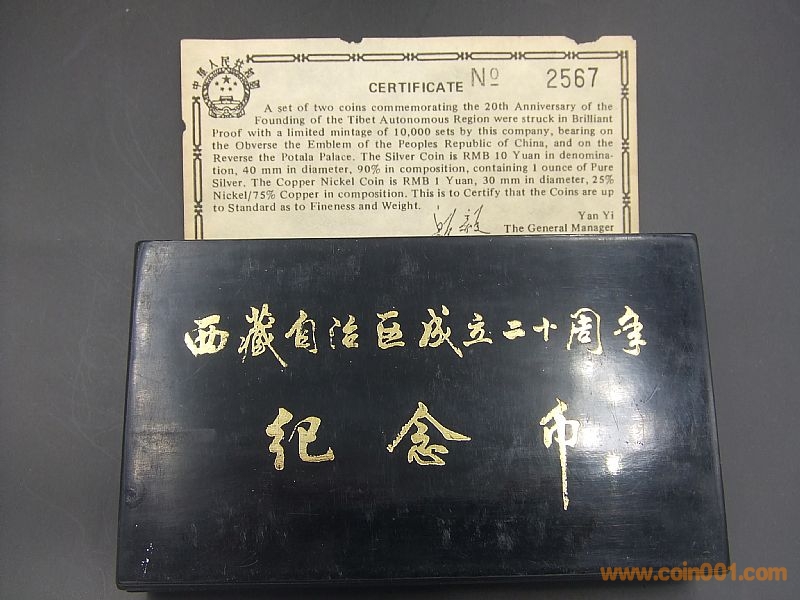 中华人民共和国
CERTIFICATE № 2567
A set of two coins commemorating the 20th Anniversary of the
Founding of the Tibet Autonomous Region were struck in Brilliant
Proof with a limited mintage of 10,000 sets by this company, bearing on
the Obverse the Emblem of the Peoples Republic of China, and on the
Reverse the Potala Palace. The Silver Coin is RMB 10 Yuan in denomina-
tion, 40 mm in diameter, 90% in composition, containing 1 ounce of Pure
Silver. The Copper Nickel Coin is RMB 1 Yuan, 30 mm in diameter, 25%
Nickel/75% Copper in composition. This is to Certify that the Coins are up
to Standard as to Fineness and Weight.
Yan Yi
The General Manager
西藏自治区成立二十周年
纪念币
www.coin001.com